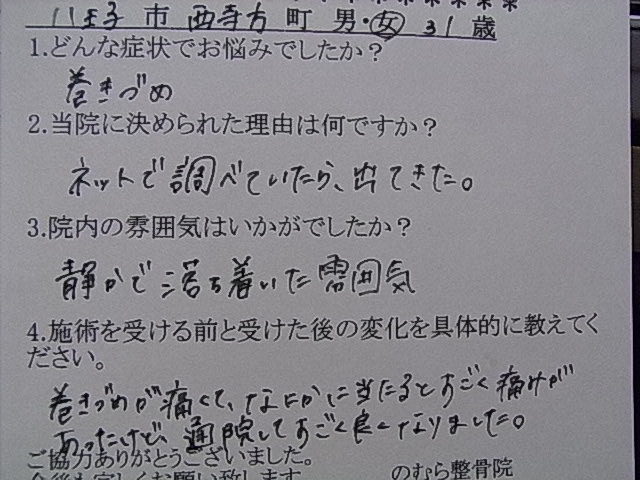 八王子市 西寺方町 男・女 31歳
1.どんな症状でお悩みでしたか？
巻きづめ
2.当院に決められた理由は何ですか？
ネットで調べていたら、出てきた。
3.院内の雰囲気はいかがでしたか？
静かで落ち着いた雰囲気
4.施術を受ける前と受けた後の変化を具体的に教えてく
ださい。
巻きづめが痛くて、なにかに当たるとすごく痛みが
あったけど、通院してすごく良くなりました。
ご協力ありがとうございました。
今後も宜しくお願い致します のむら整骨院